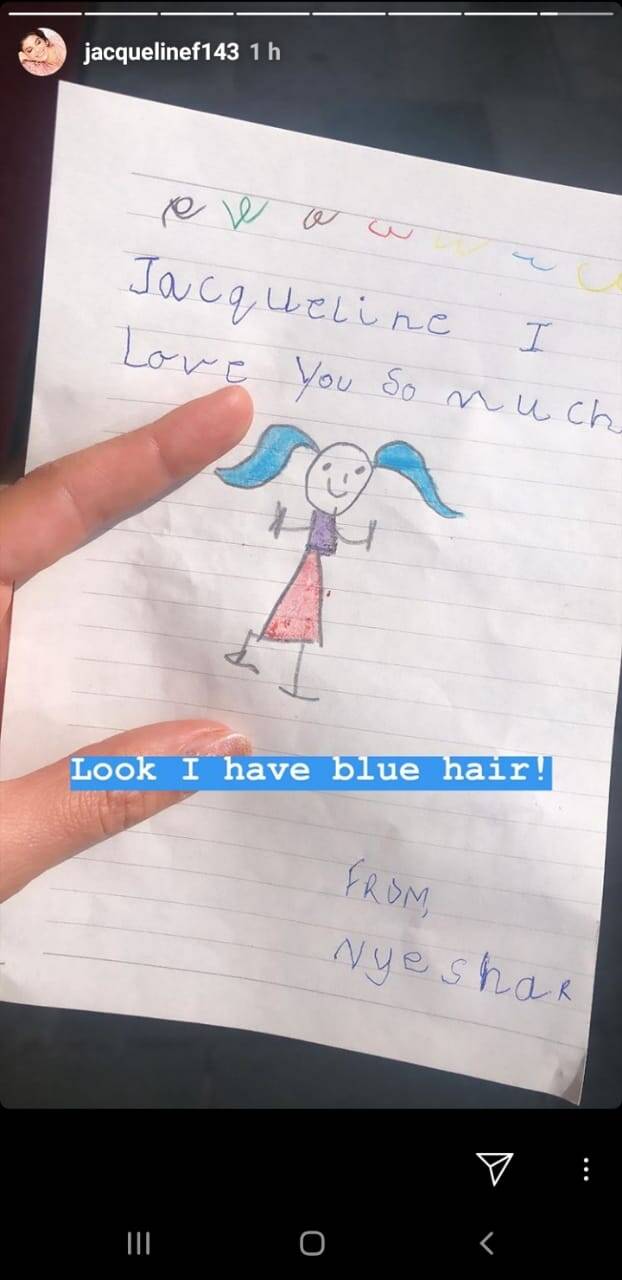 jacquelinef143 1 h
Jacqueline I
Love You So much
Look I have blue hair!
FROM,
NyeshaR